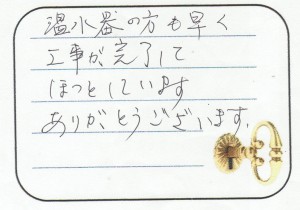 温水器の方も早く
工事が完了して
ほっとしています
ありがとうございます。